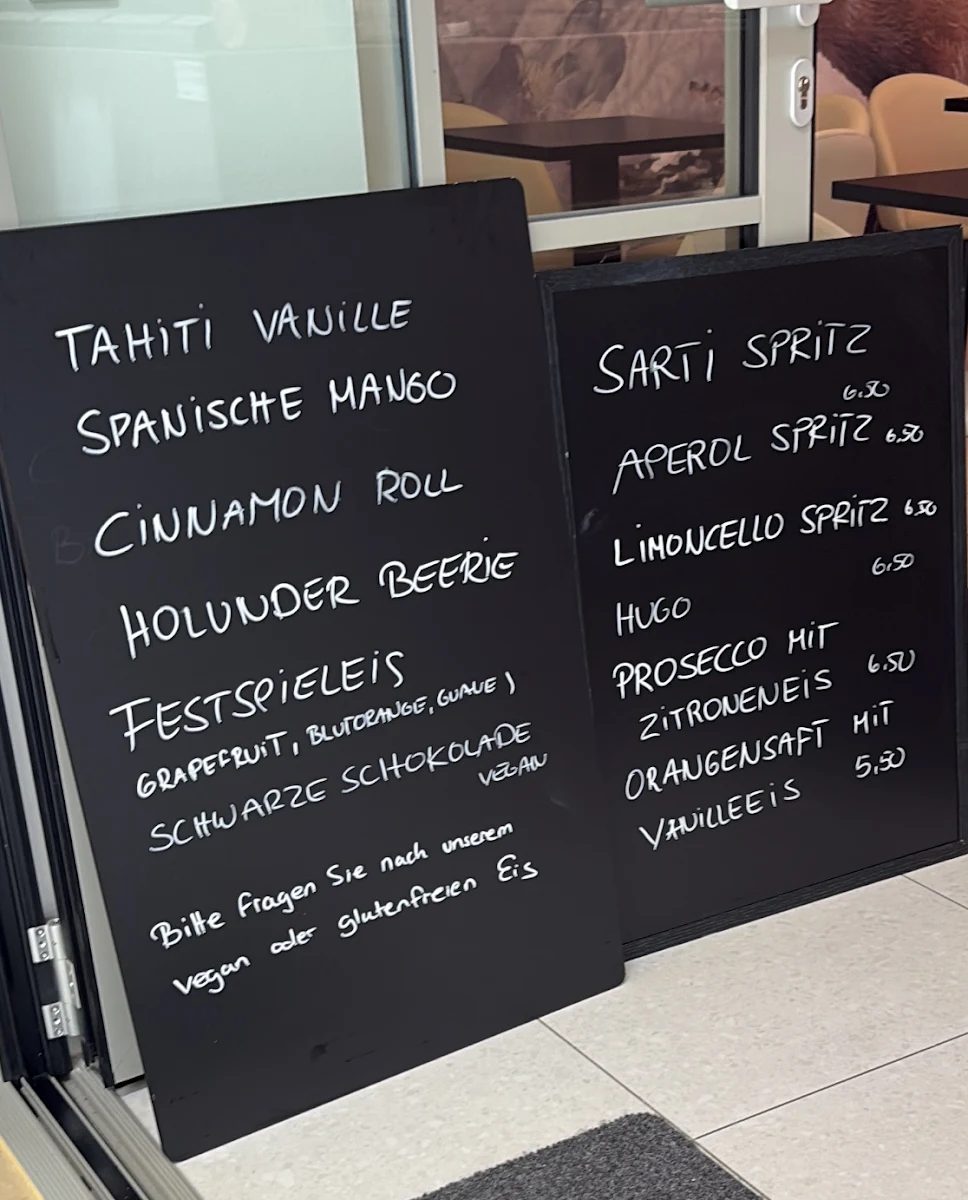 TAHITI VANILLE
SPANISCHE MANGO
CINNAMON ROLL
HOLUNDER BEERIE
FESTSPIELEIS
GRAPEFRUIT, BLUTORANGE, GUAVE)
SCHWARZE SCHOKOLADE
VEGAN
Bitte fragen Sie nach unserem
vegan oder glutenfreien Eis
SARTI SPRITZ
6.50
APEROL SPRITZ 6.50
LIMONCELLO SPRITZ 6.50
6.50
HUGO
PROSECCO MIT
ZITRONENEIS 6.50
ORANGENSAFT MIT
VANILLEEIS 5,50